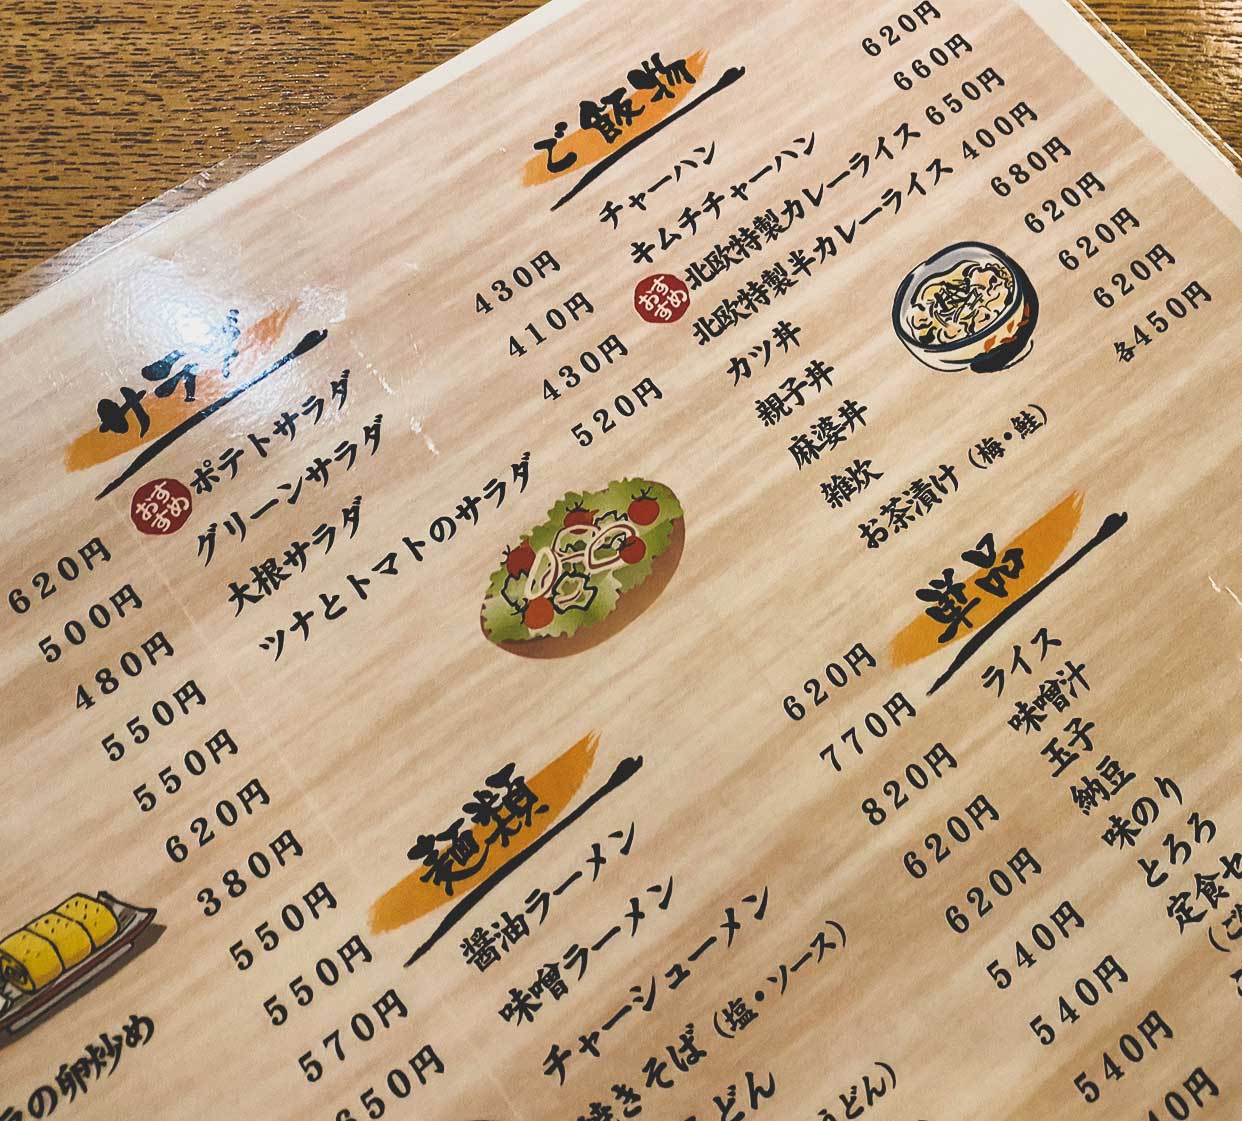 ご飯物
チャーハン 620円
キムチチャーハン 660円
おすすめ 北欧特製カレーライス 650円
北欧特製半カレーライス 400円
カツ丼 680円
親子丼 620円
麻婆丼 620円
雑炊 620円
お茶漬け(梅・鮭) 各450円
単品
ライス
味噌汁
玉子
納豆
味のり
とろろ
定食セ
(ご
サラダ
おすすめ ポテトサラダ 430円
グリーンサラダ 410円
大根サラダ 430円
ツナとトマトのサラダ 520円
麺類
醤油ラーメン 620円
味噌ラーメン 770円
チャーシューメン 820円
焼きそば(塩・ソース) 620円
うどん 620円
うどん) 540円
540円
540円
40円
620円
500円
480円
550円
550円
620円
380円
550円
550円
570円
650円
の卵炒め